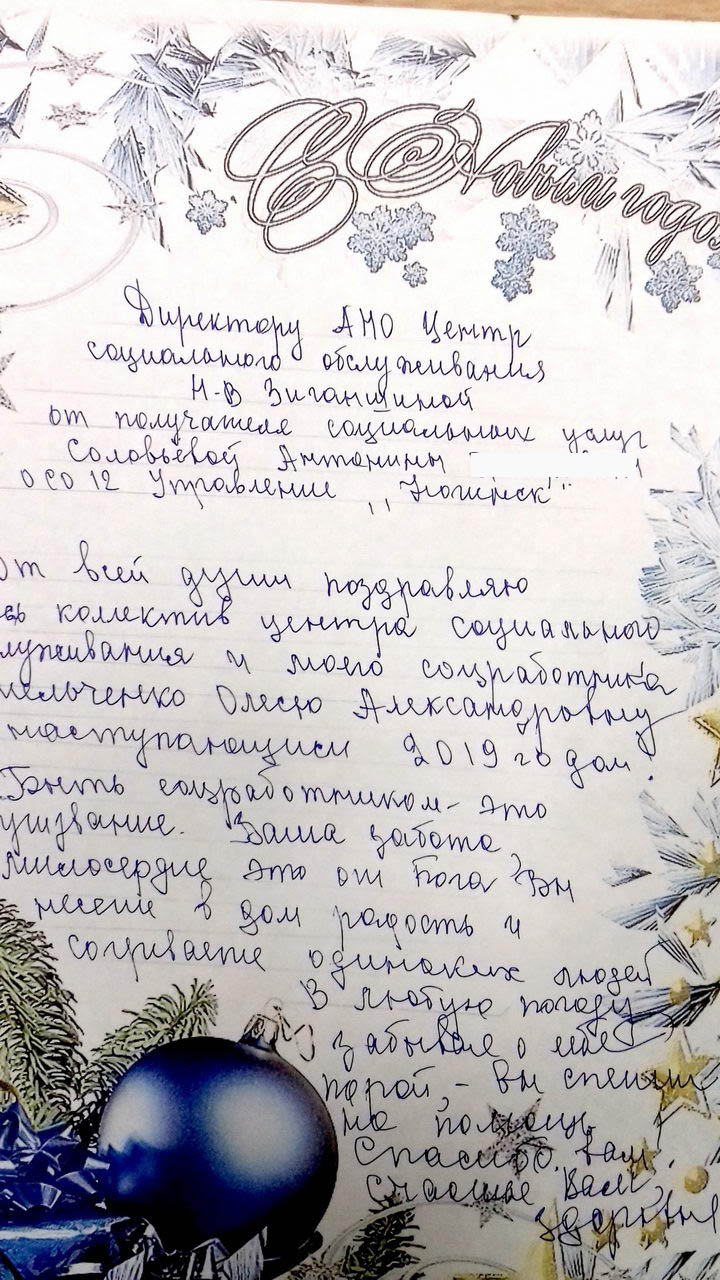 С Новым годом
Директору АНО Центр
социального обслуживания
Н.В Зиганшиной
от получателя социальных услуг
Соловьёвой Антонины
ОСО 12 Управление „Ногинск"
От всей души поздравляю
есь коллектив центра социального
луживания и моего соцработника
мельченко Олесю Александровну
наступающим 2019 годом!
Быть соцработником - это
призвание. Ваша забота,
милосердие это от Бога Вы
несете в дом радость и
согреваете одиноких людей
В любую погоду
забывая о себе
порой, - вы спешите
на помощь
Спасибо вам.
Счастье Вам,
здоровья